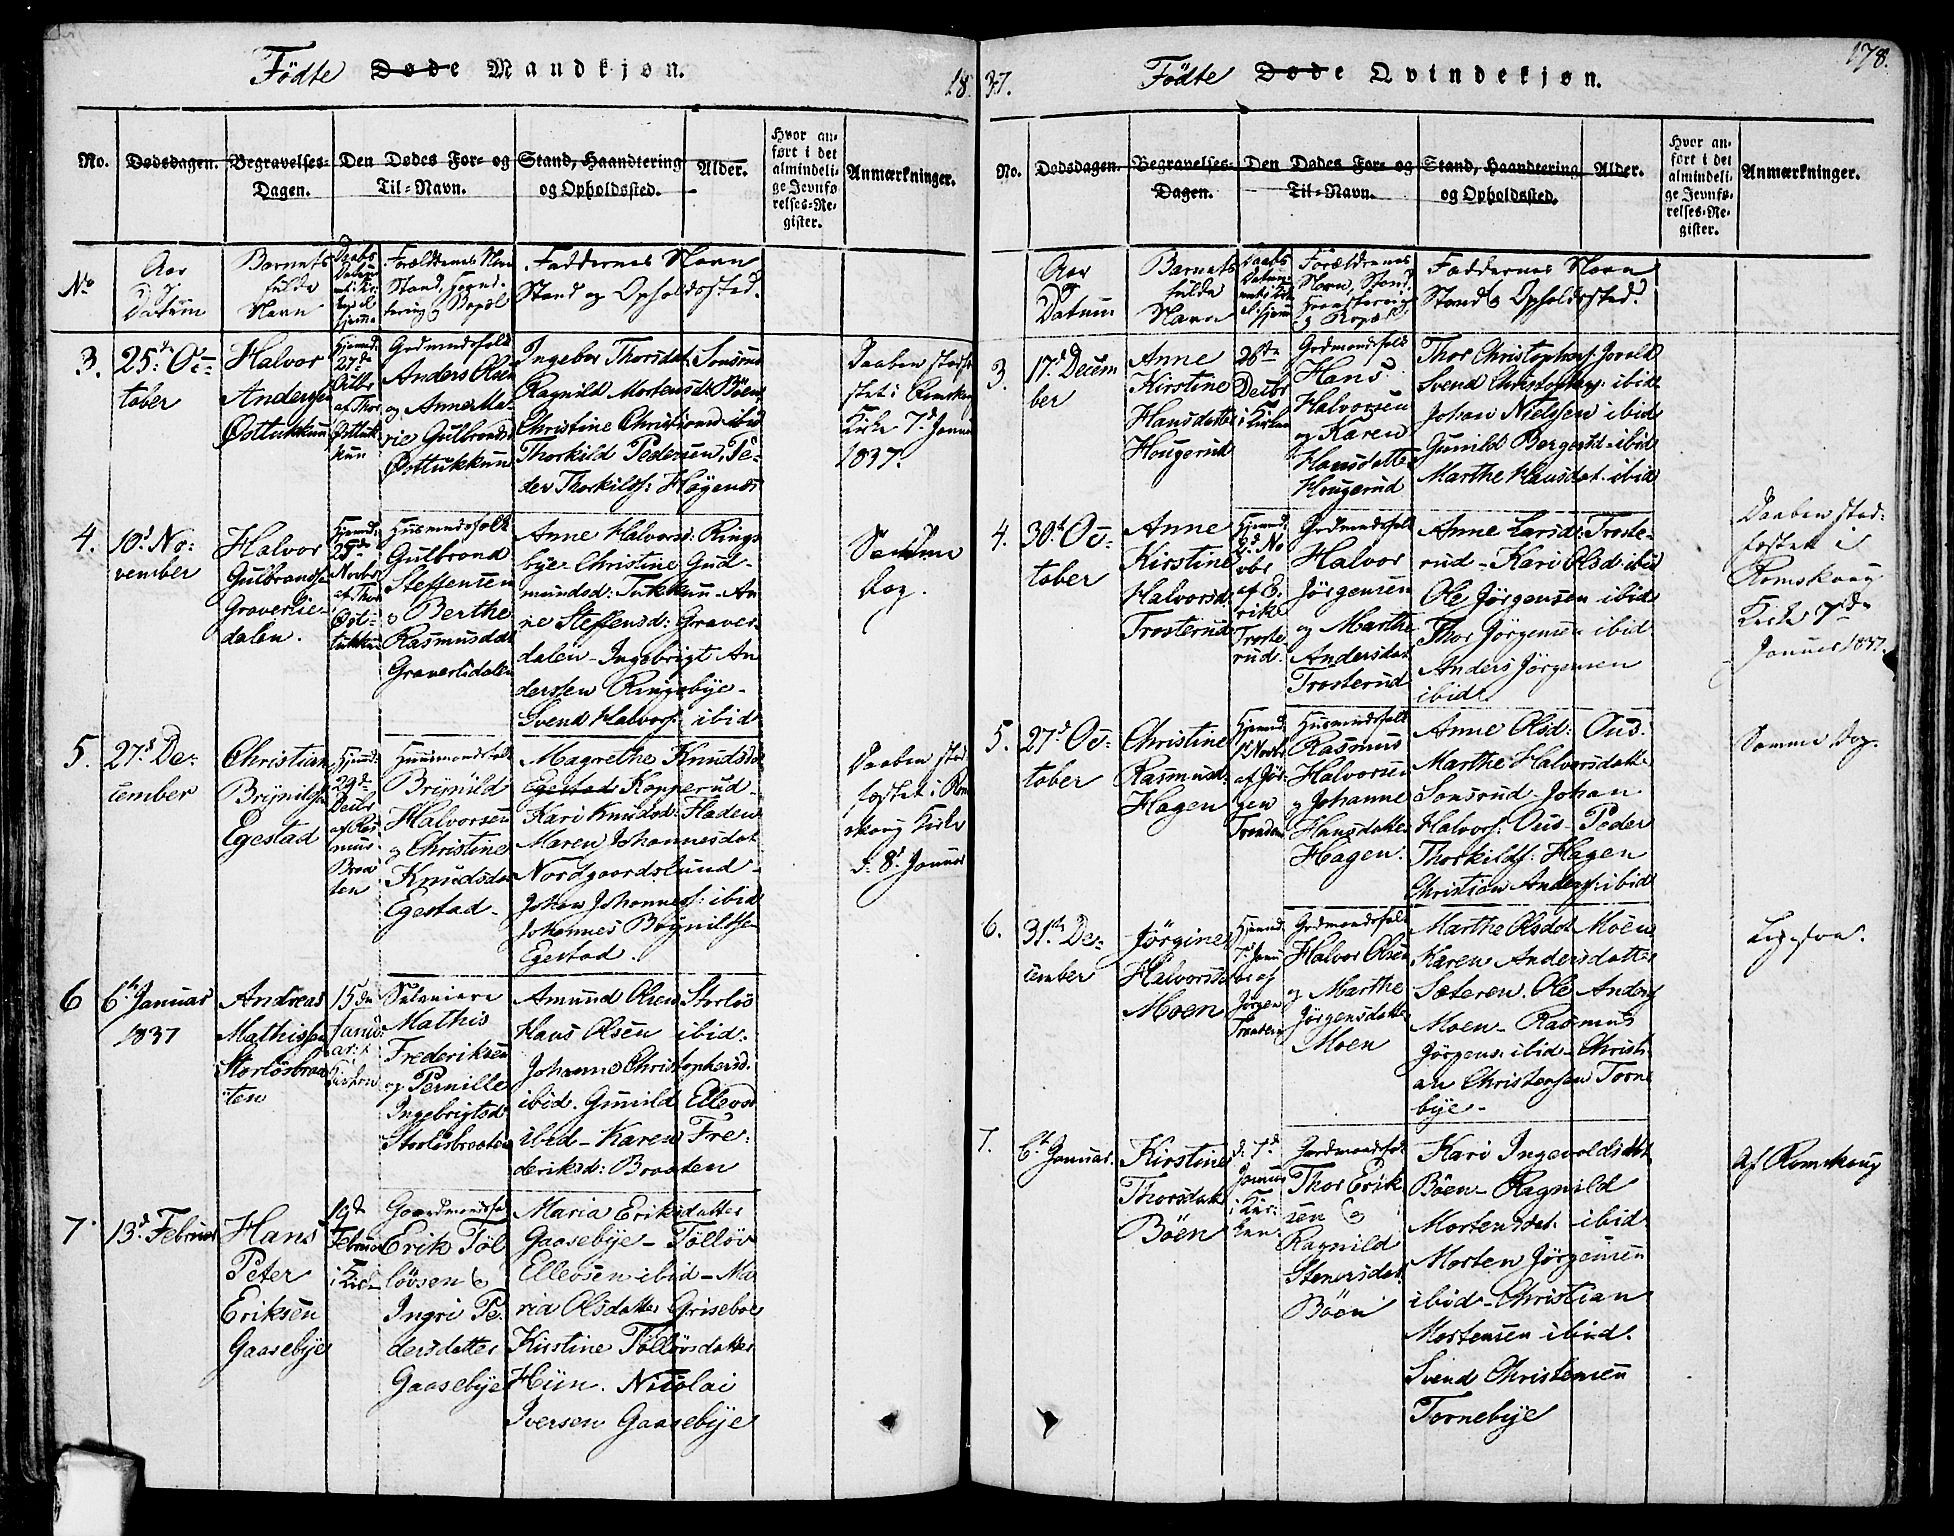 Fødte Døde Mandkjøn.
18
No.
Dødsdagen.
Begravelses-
Dagen.
Den Dødes For- og
Til-Navn.
Stand, Haandtering
og Opholdssted.
Alder.
Hvor an-
ført i det
almindeli-
ge Jevnfø-
relses-Re-
gister.
Anmærkninger.
No
Aar
og
Datum
Barnets
fulde
Navn
Daabs
Datum
Forældrenes Navn
Stand, Haand-
tering og Bopæl
Faddernes Navn
Stand og Opholdssted.
3.
25de Oc-
tober
Halvor
Andersen
Østtukkun
Hjemd:
27de
Octbr
af Thor
Østtuk-
kun
Grdmandsfolk
Anders Olsen
og Anne Ma-
rie Gulbrandsd
Østtukkun
Ingebor Thorsdat. Sonsrud
Ragnild Mortensdt. Böen
Christine Christiansd ibid
Thorkild Pedersen, Pe-
der Thorkilds: Högenæs
Daaben stadfæ-
stet i Römskoug
Kirke 7de Januar
1837.
4.
10d No-
vember
Halvor
Gulbrands
Graverlie-
dalen.
Hjemd:
25de
Novbr
af Thor
Øst-
tukkun
Husmandsfolk
Gulbrand
Steffensen
og Berthe
Rasmusdat
Graverlidalen
Anne Halvorsd: Rings
bye- Christine Gud-
mundsd: Tukkun- An
ne Steffensd: Graver-
dalen- Ingebrigt An
derssen Ringsbye-
Svend Halvors: ibid
Samme
Dag.
5.
27d De-
cember
Christian
Brynilds
Egestad
Hjemd:
29de
Decbr
af Ras
mus
Braa
ten
Huusmandsfolk
Brynild
Halvorsen
og Christine
Knudsdat
Egestad-
Magrethe Knudsdat
Egestad Kopperud-
Kari Knudsd: Fladen
Maren Johannesdat
Nordgaardslund-
Johan Johannes: ibid
Johannes Brynildsen
Egestad.
Daaben stad-
fæstet i Röm
skoug Kirke
d. 8d Januar
6
6te Januar
1837
Andreas
Mathissen
Storlösbraa
ten
15de
Janu-
ar i
Kirken
Selveiere
Mathis
Frederiksen
og Pernille
Ingebrigtsd
Storlösbraaten
Amund Olsen Storlös
Hans Olsen ibid:
Johanne Christophersd.
ibid. Gunild Ellevsd
ibid- Karen Fre-
deriksd: Braaten
7.
13d Februar
Hans
Peter
Eriksen
Gaasebye
19de
Februar
i Kirk
Gaardmandsfolk
Erik Töl
lövsen og
Ingri Pe-
dersdatter
Gaasebye
Maria Eriksdatter
Gaasebye- Tölløv
Ellevsen ibid- Ma
ria Olsdatter Griseboe
Kirstine Töllövsdatter
Hün. Nicolai
Iversen Gaasebye
37.
Fødte Døde Qvindekjøn.
178.
No.
Dødsdagen.
Begravelses-
Dagen.
Den Dødes For- og
Til-Navn.
Stand, Haandtering
og Opholdssted.
Alder.
Hvor an-
ført i det
almindeli-
ge Jevnfø-
relses-Re-
gister.
Anmærkninger.
Aar
og
Datum
Barnets
fulde
Navn
Daabs
Datum
Forældrenes
Navn, Stand,
Haandtering
og Bopæl
Faddernes Navn
Stand og Opholdssted.
3.
17d Decem
ber
Anne
Kirstine
Hansdatter
Hougerud
26de
Decbr
i Kirken
Grdmandsfolk
Hans
Halvorsen
og Karen
Hansdatter
Hougerud
Thor Christophers: Jovald
Svend Christophers: ibid
Johan Nielsen ibid
Gunild Borgersd: ibid
Marthe Hansdat. ibid
4.
30te Oc-
tober
Anne
Kirstine
Halvorsd:
Trosterud
Hjemd:
2d No
vbr
af E-
rik
Troste
rud.
Grdmandsfolk
Halvor
Jörgensen
og Marthe
Andersdat
Trosterud
Anne Larsd: Troste-
rud- Kari Olsd. ibid
Ole Jörgensen ibid
Thor Jörgensen ibid
Anders Jörgensen
ibid
Daaben stad-
fæstet i
Römskoug
Kirke 7de
Januar 1837.
5.
27d Oc-
tober
Christine
Rasmusd:
Hagen
Hjemd:
1d Novbr
af Jör-
gen
Tronsen
Husmandsfolk
Rasmus
Halvorsen
og Johanne
Hansdatter
Hagen.
Anne Olsd: Ous-
Marthe Halvorsdatter
Sonsrud- Johan
Halvors: Ous- Peder
Thorkilds: Hagen
Christian Anders: ibid
Samme Dag.
6.
31te De-
cember
Jörgine
Halvorsd
Moen
Hjemd:
7d Janu
ar af
Jörgen
Tronsen
Grdmandsfolk
Halvor Olsen
og Marthe
Jörgensdatter
Moen
Marthe Olsdat. Moen
Karen Andersdatter
Sæteren. Ole Anders
Moen- Rasmus
Jörgens: ibid- Christi-
an Christensen Torne
bye-
Ligesaa.
7.
6te Januar.
Kirstine
Thorsdat
Böen
d. 7d
Januar
i Kir-
ken.
Gardmandsfolk
Thor Erik
sen og
Ragnild
Stenersdat
Böen
Kari Ingevoldsdat
Böen- Ragnild
Mortensdat. ibid
Morten Jörgensen
ibid- Christian
Mortensen ibid.
Svend Christensen
Tornebye
Af Römskoug